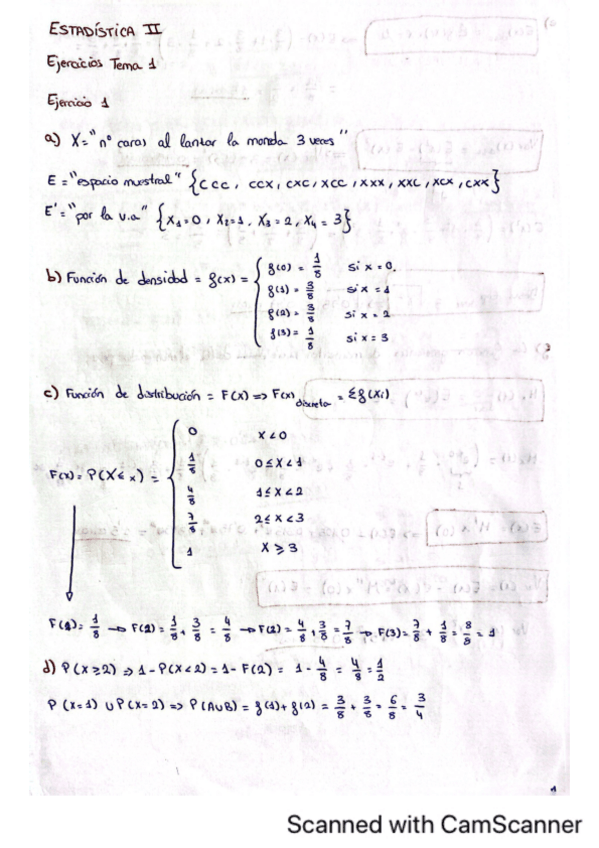 ESTADÍSTICA II
Ejercicios Tema 1
Ejercicio 1
a) X = "nº caras al lanzar la moneda 3 veces"
E = "espacio muestral" {CCC, CCX, CXC, XCC, XXX, XXC, XCX, CXX}
E' = "por la v.a" {X₁=0, X₂=1, X₃=2, X₄=3}
b) Función de densidad = f(x) =
f(0) = 1/8 si x = 0.
f(1) = 3/8 si x = 1
f(2) = 3/8 si x = 2
f(3) = 1/8 si x = 3
c) Función de distribución = F(x) => F(x) discreta = Σf(xi)
F(x) = P(X ≤ x) =
0 X < 0
1/8 0 ≤ X < 1
4/8 1 ≤ X < 2
7/8 2 ≤ X < 3
1 X ≥ 3
1/8 → 1/8 + 3/8 = 4/8 → F(2) = 4/8 + 3/8 = 7/8 → F(3) = 7/8 + 1/8 = 8/8 = 1
d) P(X ≥ 2) => 1 - P(X < 2) = 1 - F(2) = 1 - 4/8 = 4/8 = 1/2
P(X = 1) ∪ P(X = 2) => P(A∪B) = f(1) + f(2) = 3/8 + 3/8 = 6/8 = 3/4
1
Scanned with CamScanner